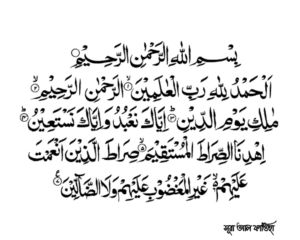 بِسْمِ اللهِ الرَّحْمٰنِ الرَّحِيْمِ
اَلْحَمْدُ لِلّٰهِ رَبِّ الْعٰلَمِيْنَ ۙ﴿۱﴾ الرَّحْمٰنِ الرَّحِيْمِ ۙ﴿۲﴾
مٰلِكِ يَوْمِ الدِّيْنِ ؕ﴿۳﴾ اِيَّاكَ نَعْبُدُ وَاِيَّاكَ نَسْتَعِيْنُ ؕ﴿۴﴾
اِهْدِنَا الصِّرَاطَ الْمُسْتَقِيْمَ ۙ﴿۵﴾ صِرَاطَ الَّذِيْنَ اَنْعَمْتَ
عَلَيْهِمْ ۙ۬﴿۶﴾ غَيْرِ الْمَغْضُوْبِ عَلَيْهِمْ وَلَا الضَّآلِّيْنَ ﴿۷﴾
সূরা আল ফাতিহা